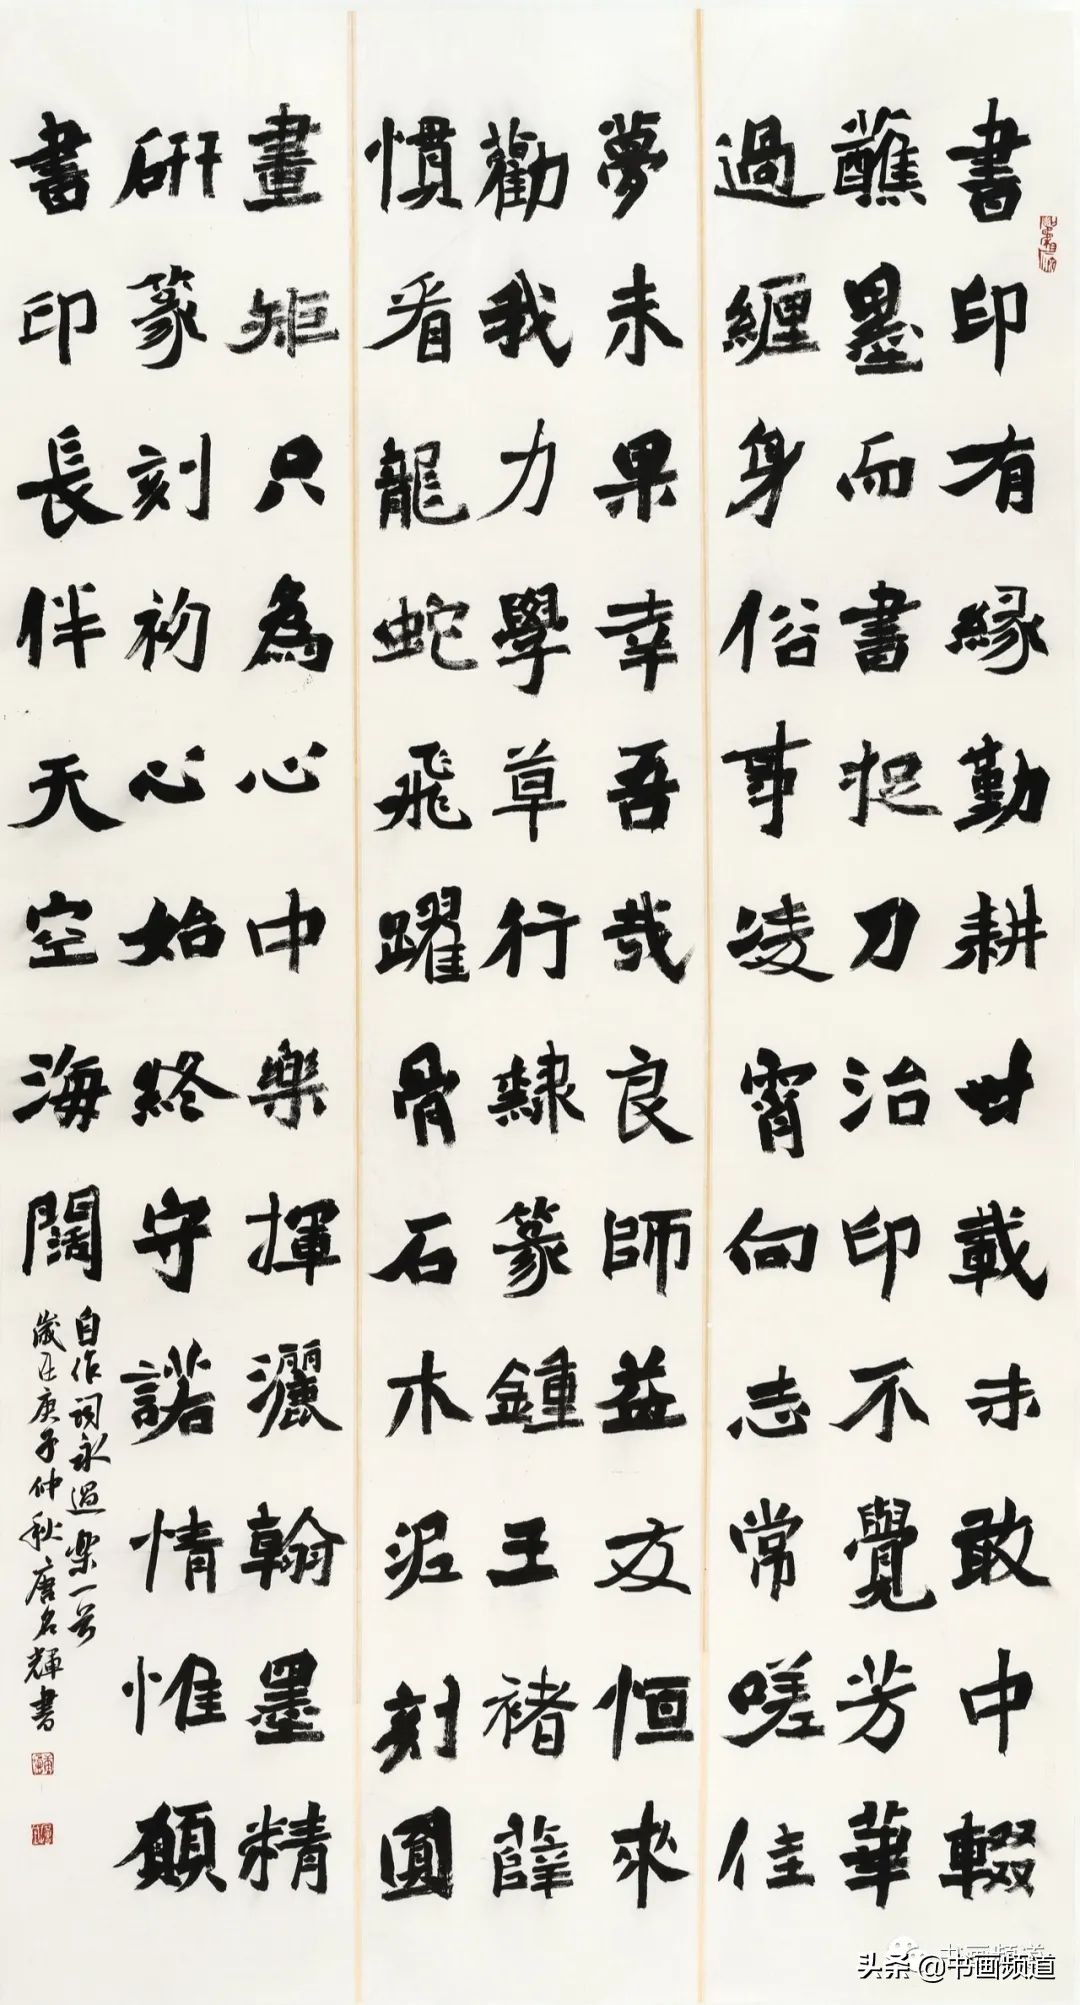 書印有緣勤耕廿載未敢中輟
蘸墨而書捉刀治印不覺芳華
過纏身俗事凌霄向志常嗟佳
夢未果幸吾哉良師益友恒來
勸我力學草行隸篆鍾王褚薛
慣看龍蛇飛躍骨石木泥刻圓
畫矩只為心中樂揮灑翰墨精
研篆刻初心始終守諾情惟願
書印長伴天空海闊
自作詞永遇樂一首
歲在庚子仲秋唐名輝書
书画频道
头条 @书画频道